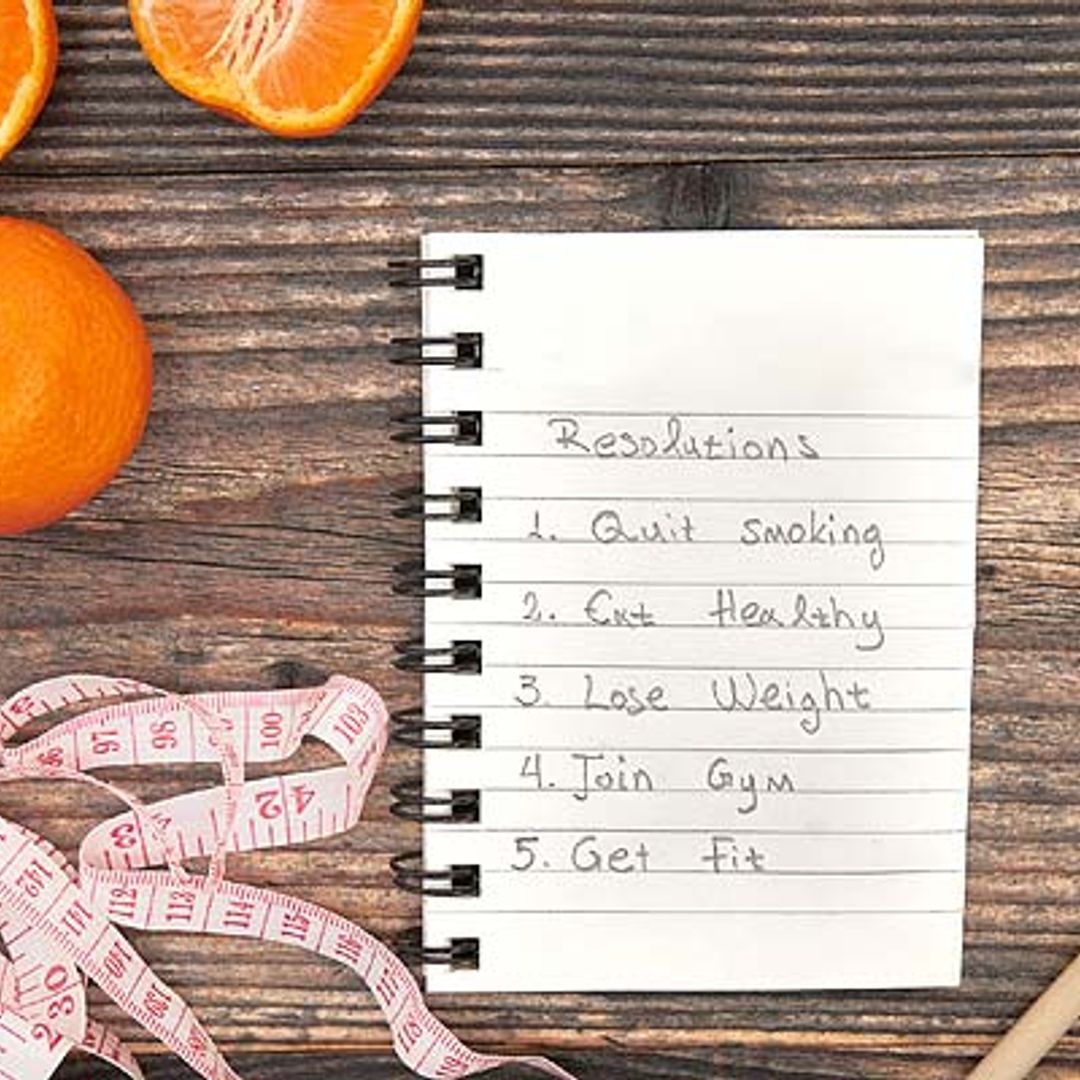 Resolutions
1. Quit smoking
2. Eat Healthy
3. Lose Weight
4. Join Gym
5. Get Fit
97
98
100
103
3
2
4
112
113
114
115